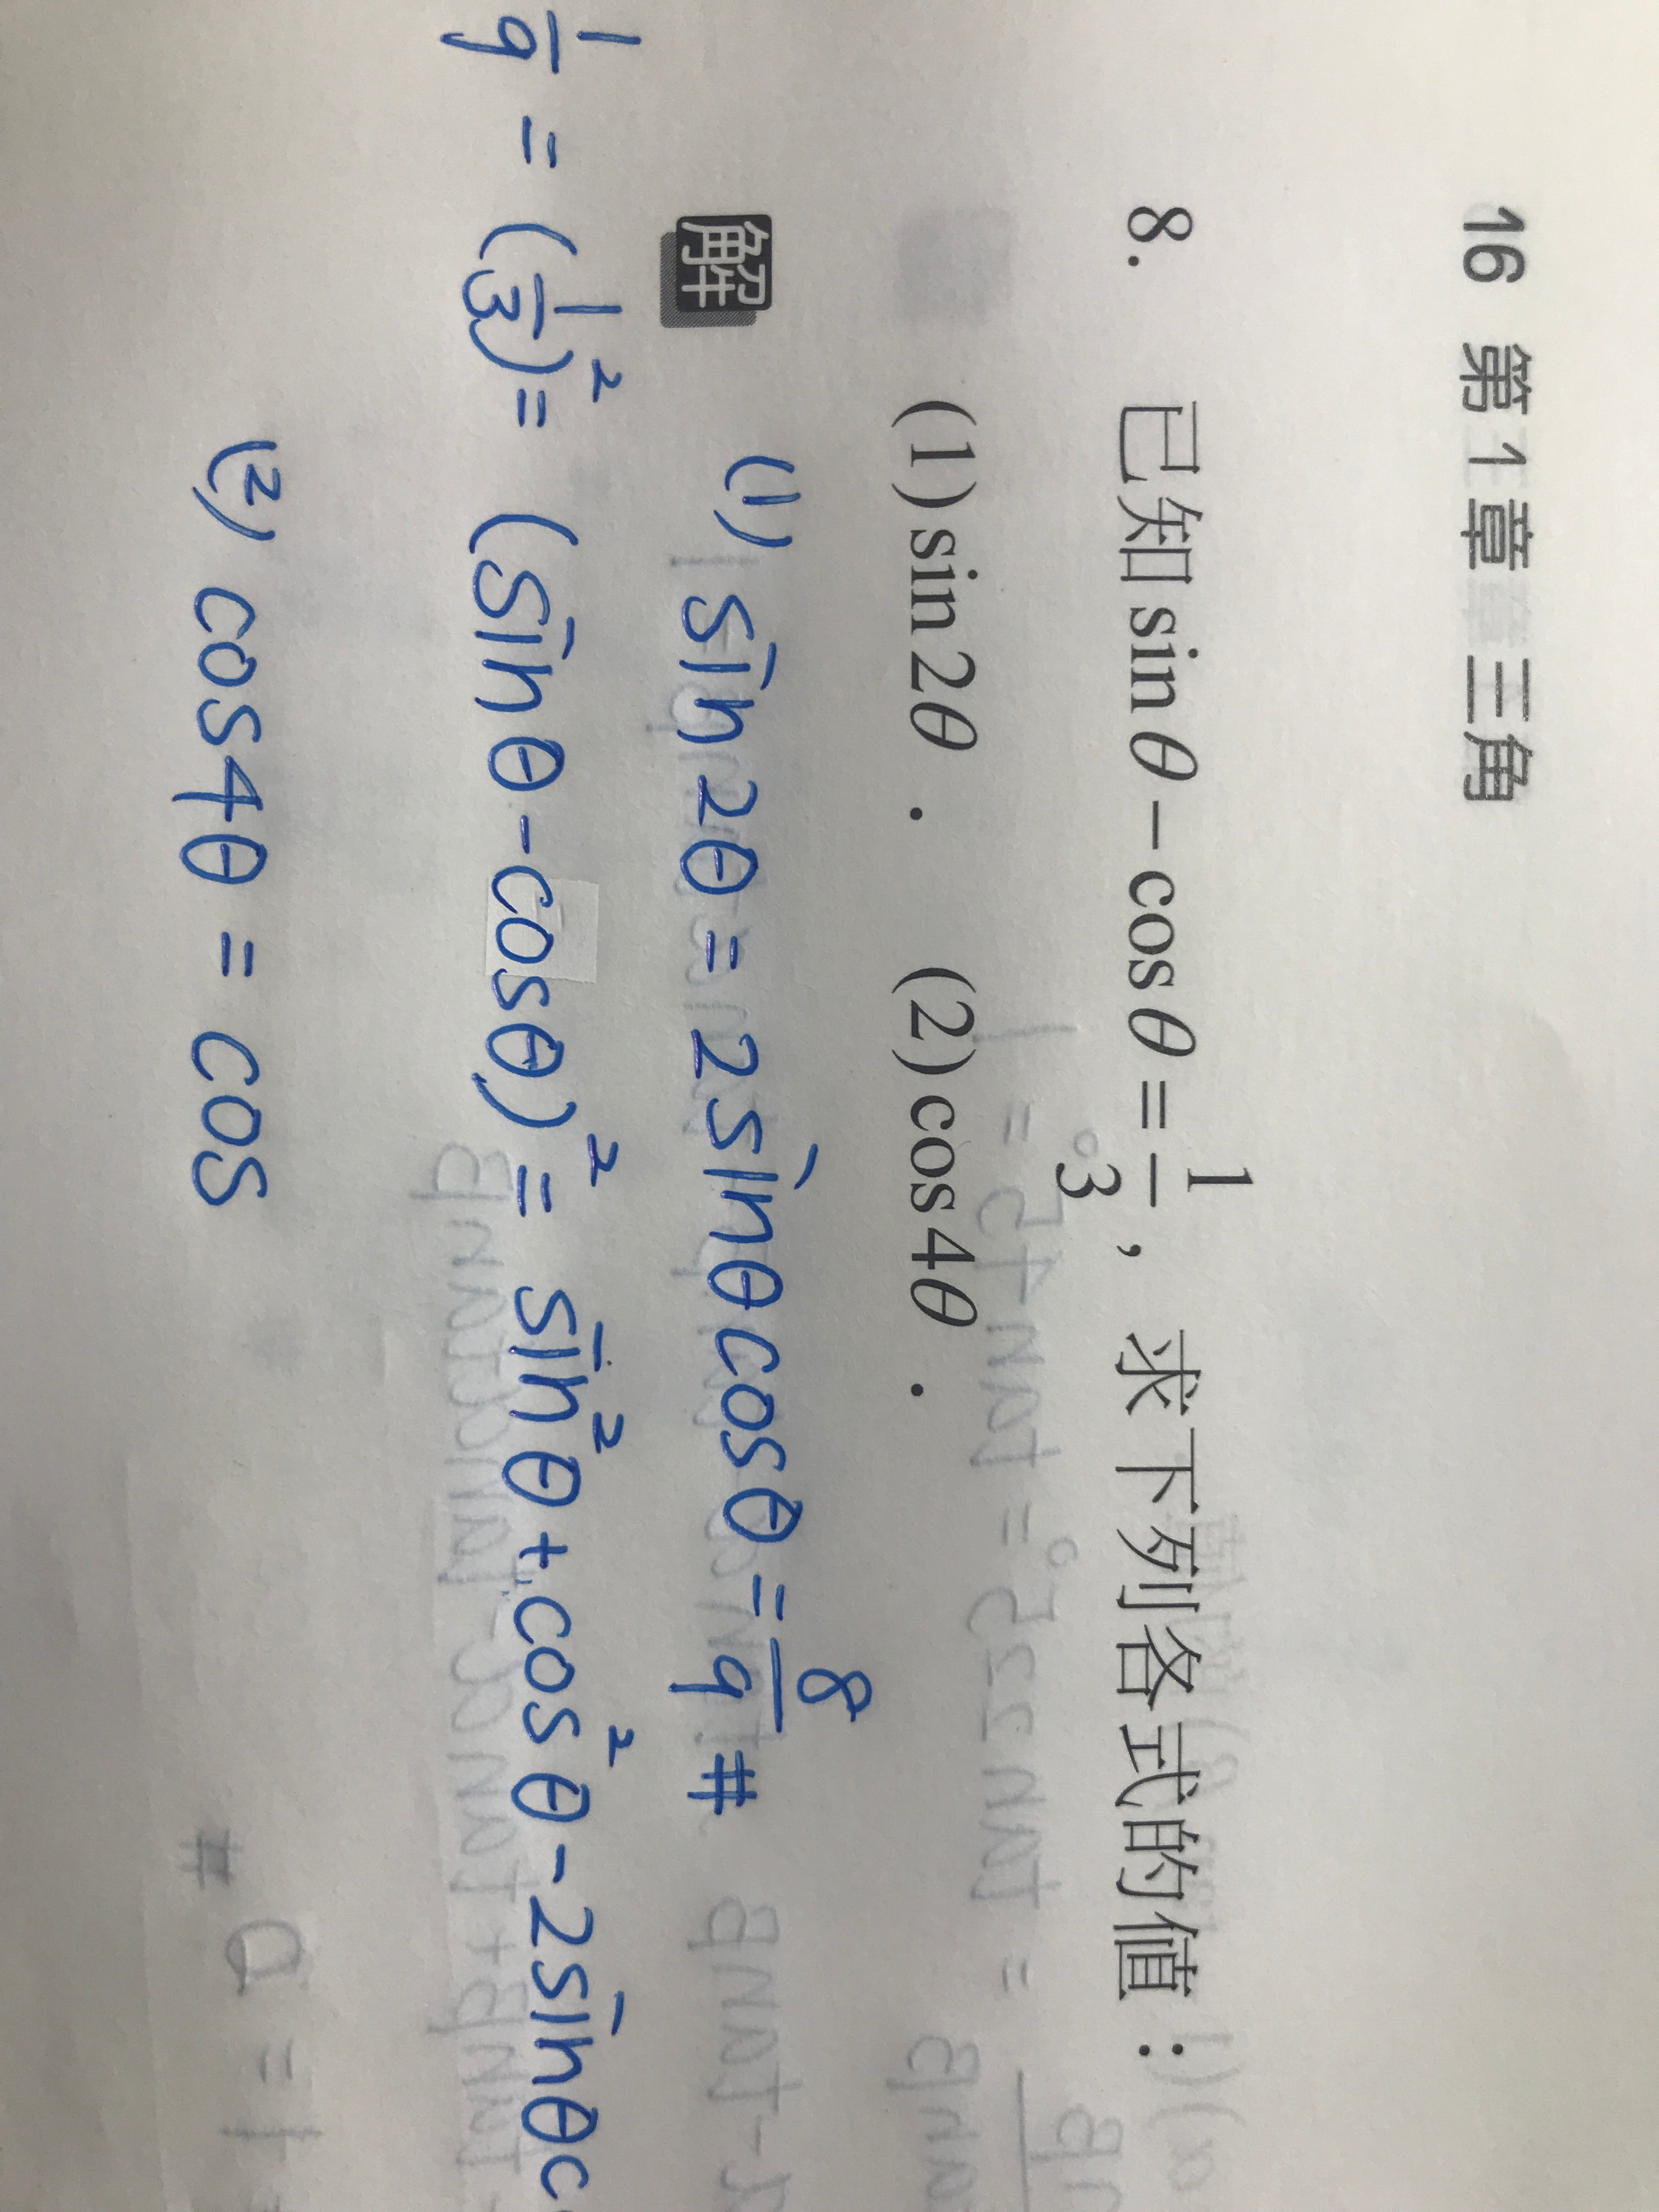 16 第1章 三角
8. 已知 sin θ − cos θ = 1/3，求下列各式的值：
(1) sin 2θ． (2) cos 4θ．
解 (1) sin 2θ = 2 sin θ cos θ = 8/9 #
1/9 = (1/3)² = (sin θ - cos θ)² = sin² θ + cos² θ - 2 sin θ c
(2) cos 4θ = cos